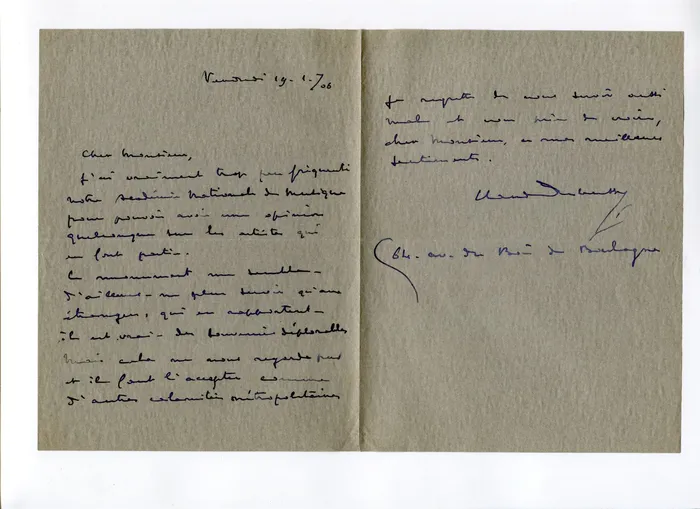 Vendredi 19.1./06
Cher Monsieur,
J'ai vraiment trop peu fréquenté
notre Académie Nationale de Musique
pour pouvoir avoir une opinion
quelconque sur les artistes qui
en font partie.
Ce monument me semble
d'ailleurs ne plus servir qu'aux
étrangers, qui en rapportent
il est vrai des souvenirs déplorables
Mais cela ne nous regarde pas
et il faut l'accepter comme
d'autres calamités métropolitaines
Je regrette de vous servir aussi
mal et vous prie de croire,
cher Monsieur, à mes meilleurs
sentiments.
Claude Debussy
64. av. du Bois de Boulogne